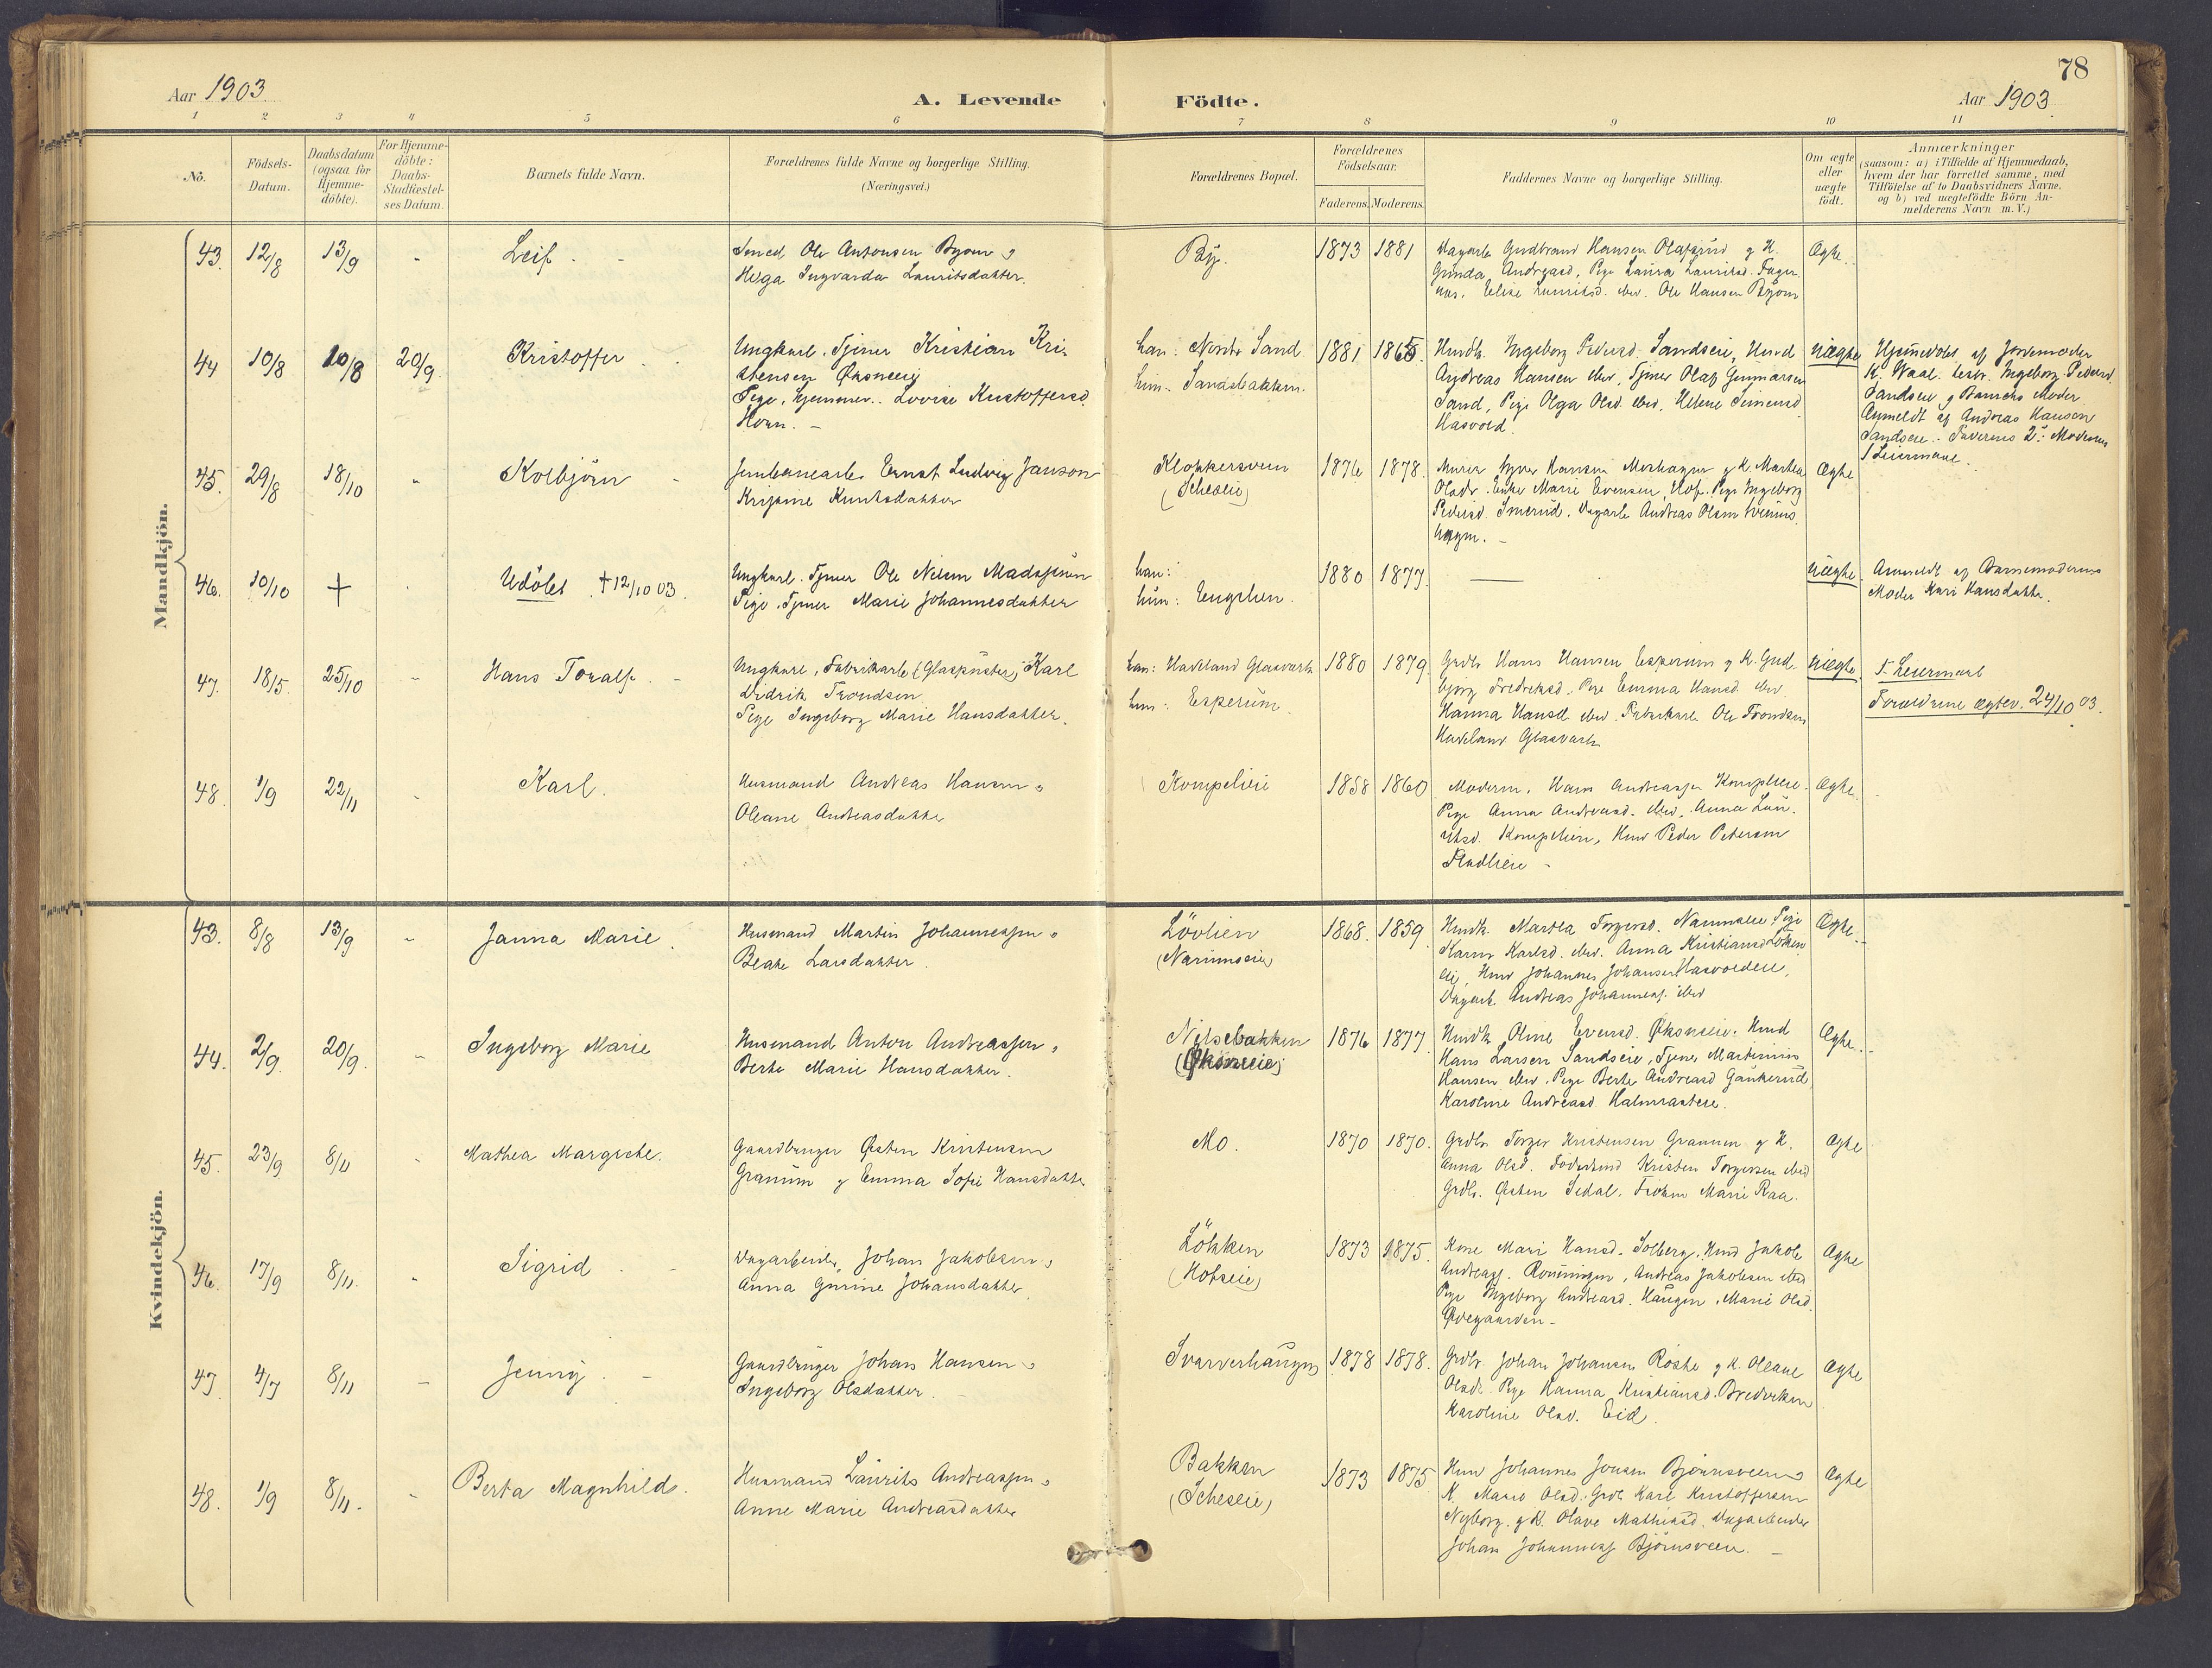 78
Aar 1903
A. Levende Födte.
Aar 1903
1 2 3 4 5 6 7 8 9 10 11
No.
Födsels-Datum.
Daabsdatum (ogsaa for Hjemme-döbte).
For Hjemme-döbte: Daabs-Stadfæstel-ses Datum.
Barnets fulde Navn.
Forældrenes fulde Navne og borgerlige Stilling.
(Næringsvei.)
Forældrenes Bopæl.
Forældrenes Födselsaar.
Faderens. Moderens.
Faddernes Navne og borgerlige Stilling.
Om ægte eller uægte födt.
Anmærkninger
(saasom: a) i Tilfælde af Hjemmedaab,
hvem der har forrettet samme, med
Tilföielse af to Daabsvidners Navne.
og b) ved uægtefödte Börn An-
melderens Navn m. V.)
Mandkjön.
43. 12/8 13/9 - Leif
Smed Ole Antonsen Byom og
Helga Ingvarda Lauritsdatter.
By. 1873 1881
Dagarb. Gudbrand Hansen Olafsrud g K.
Gunda Andreasd, Pige Laura Lauritsd.
Elise Lauritsd. ibid. Ole Hansen Byom
Ægte.
44 10/8 10/8 20/9 Kristoffer
Ungkarl. Tjener Kristian Kri-
stensen
Pige, hjemmev. Lovise Kristoffersd.
Horn. -
han: Nordre Sand
hun: Sandsbakken.
1881 1865.
Husm. Ingeborg Pedersd. Sandseie, Husmd
Andreas Hansen ibid, Tjener Olaf Gunnarsen
Sand, Pige Olga Olsd. ibid, Helene
Hasvold.
Uægte
Hjemmedöbt af Jordemoder
K. Waal. Test. Ingeborg Pedersd.
Sandseie g Barnets Moder
Anmeldt af Andreas Hansen
Sandseie. Faderens 2. Moderens
1 Leiermaal.
45. 29/8 18/10 Kolbjörn
Jernbanearb. Ernst Ludvig Janson
Kristine Knutsdatter
Klokkersveen
(Scheseie)
1876 1878.
Murer Hansen g K. Marthea
Olsdr. Enke Marie Evensen, Hof. Pige Ingeborg
Pedersd. Smerud, Dagarb Andreas Olsen
Ægte
46. 10/10 † Udöbt †12/10 03.
Ungkarl. Tjener Ole Nilsen
Pige. Tjener Marie Johannesdatter
han:
hun: Engelien.
1880 1877.
Uægte
Anmeldt af Barnemoderens
Moder Kari Hansdatter.
47. 18/5. 25/10 - Hans Toralf.
Ungkarl, Fabrikarb. (Glaspuster) Karl
Didrik Trondsen
Pige Ingeborg Marie Hansdatter.
han: Hadeland Glasværk
hun: Esperum.
1880 1879.
Grdbr Hans Hansen Esperum g K. Gud-
björg Fredriksd. Pige Emma Hansd. ibid.
Hanna Hansd. ibid. Fabrikarb. Ole Trondsen
Hadeland Glasværk
Uægte
1. Leiermaal
Forældrene ægtev. 24/10 03.
48. 1/9 22/11 Karl.
Husmand Andreas Hansen og
Oleane Andreasdatter
Kompelien 1858 1860
Moderen, Hans Andreassen
Pige Anna Andreasd. ibid, Anna Lau-
ritsd. Kompelien, Husm Peder Petersen
Ægte
Kvindekjön.
43. 8/8 13/9 - Janna Marie.
Husmand Martin Johannessen og
Beate Larsdatter.
Lövlien
(Narumseie)
1868. 1859
Husmk. Martea Torgersd. Narumseie. Pige
Karen Karlsd. ibid. Anna Kristiansd Lökken-
eie, Husm Johannes Johansen Hasvoldeie,
Dagarb. Andreas Johanness. ibid
Ægte.
44. 2/9. 20/9. - Ingeborg Marie
Husmand Anton Andreassen og
Berte Marie Hansdatter.
Nilsebakken
(Öksneeie)
1876 1877.
Husmk Oline Evensd. Öksneeie. Husmd
Hans Larsen Sandseie, Tjener Martinius
Hansen ibid. Pige Berte Andreasd Gaukerud
Karoline Andreasd.
Ægte.
45. 23/9 8/11 Mathea Margrete.
Gaardbruger Östen Kristensen
Granum g Emma Sofie Hansdatter
Mo. 1870 1870.
Grdbr Torger Kristensen Granum g K.
Anna Olsd. Föderaadsmd Kristen Torgersen ibid
Grdbr. Östen Sedal. Fröken Marie Raa.
Ægte
46. 17/9 8/11. Sigrid
Dagarbeider Johan Jakobsen og
Anna Gurine Johansdatter
Lökken
(Hofseie)
1873 1875.
Kone Mari Hansd. Solberg. Husmd Jakob
Andreass. Rönningen, Andreas Jakobsen ibid
Pige Ingeborg Andreasd. Haugen, Marie Olsd.
Ödegaarden -
Ægte
47 4/7 8/11 - Jenny
Gaardbruger Johan Hansen og
Ingeborg Olsdatter.
Svarverhaugen 1878 1878.
Grdbr. Johan Johansen Roste g K. Oleane
Olsdr. Pige Hanna Kristiansd. Bredviken
Karoline Olsd. Eid.
Ægte
48. 1/9 8/11. - Berta Magnhild.
Husmand Laurits Andreassen og
Anne Marie Andreasdatter
Bakken
(Scheseie)
1873 1875
Husm Johannes Jonsen Björnsveen og
K. Mari Olsd. Grdb Karl Kristoffersen
Nyborg. g K. Olave Mathiasd. Dagarbeider
Johan Johanness Björnsveen. -
Ægte